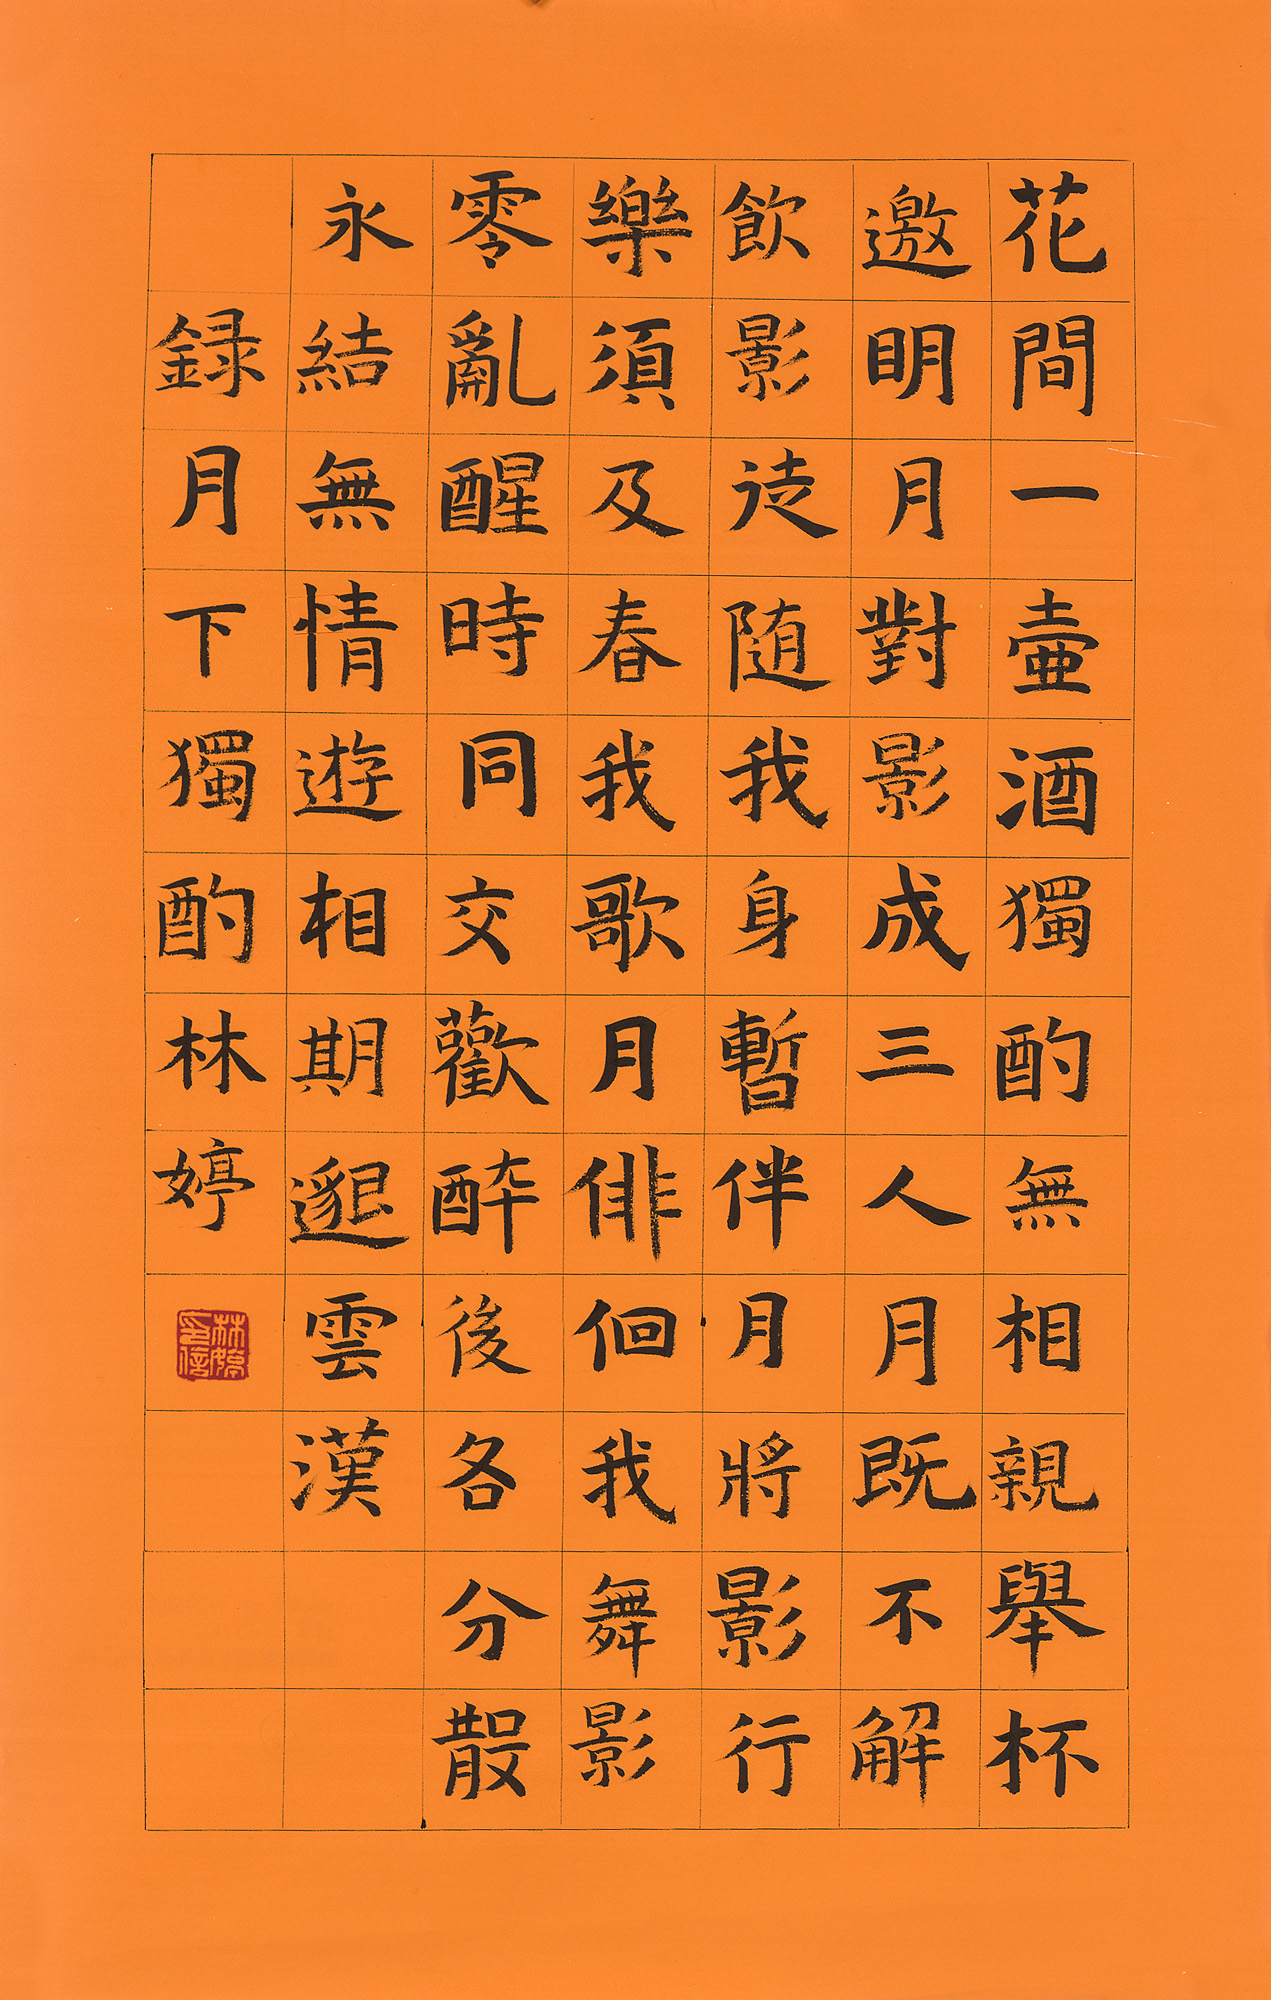 花間一壷酒獨酌無相親舉杯
邀明月對影成三人月既不解
飲影徒随我身暫伴月將影行
樂須及春我歌月俳佪我舞影
零亂醒時同交歡醉後各分散
永結無情遊相期邈雲漢
録月下獨酌林婷
林婷印信